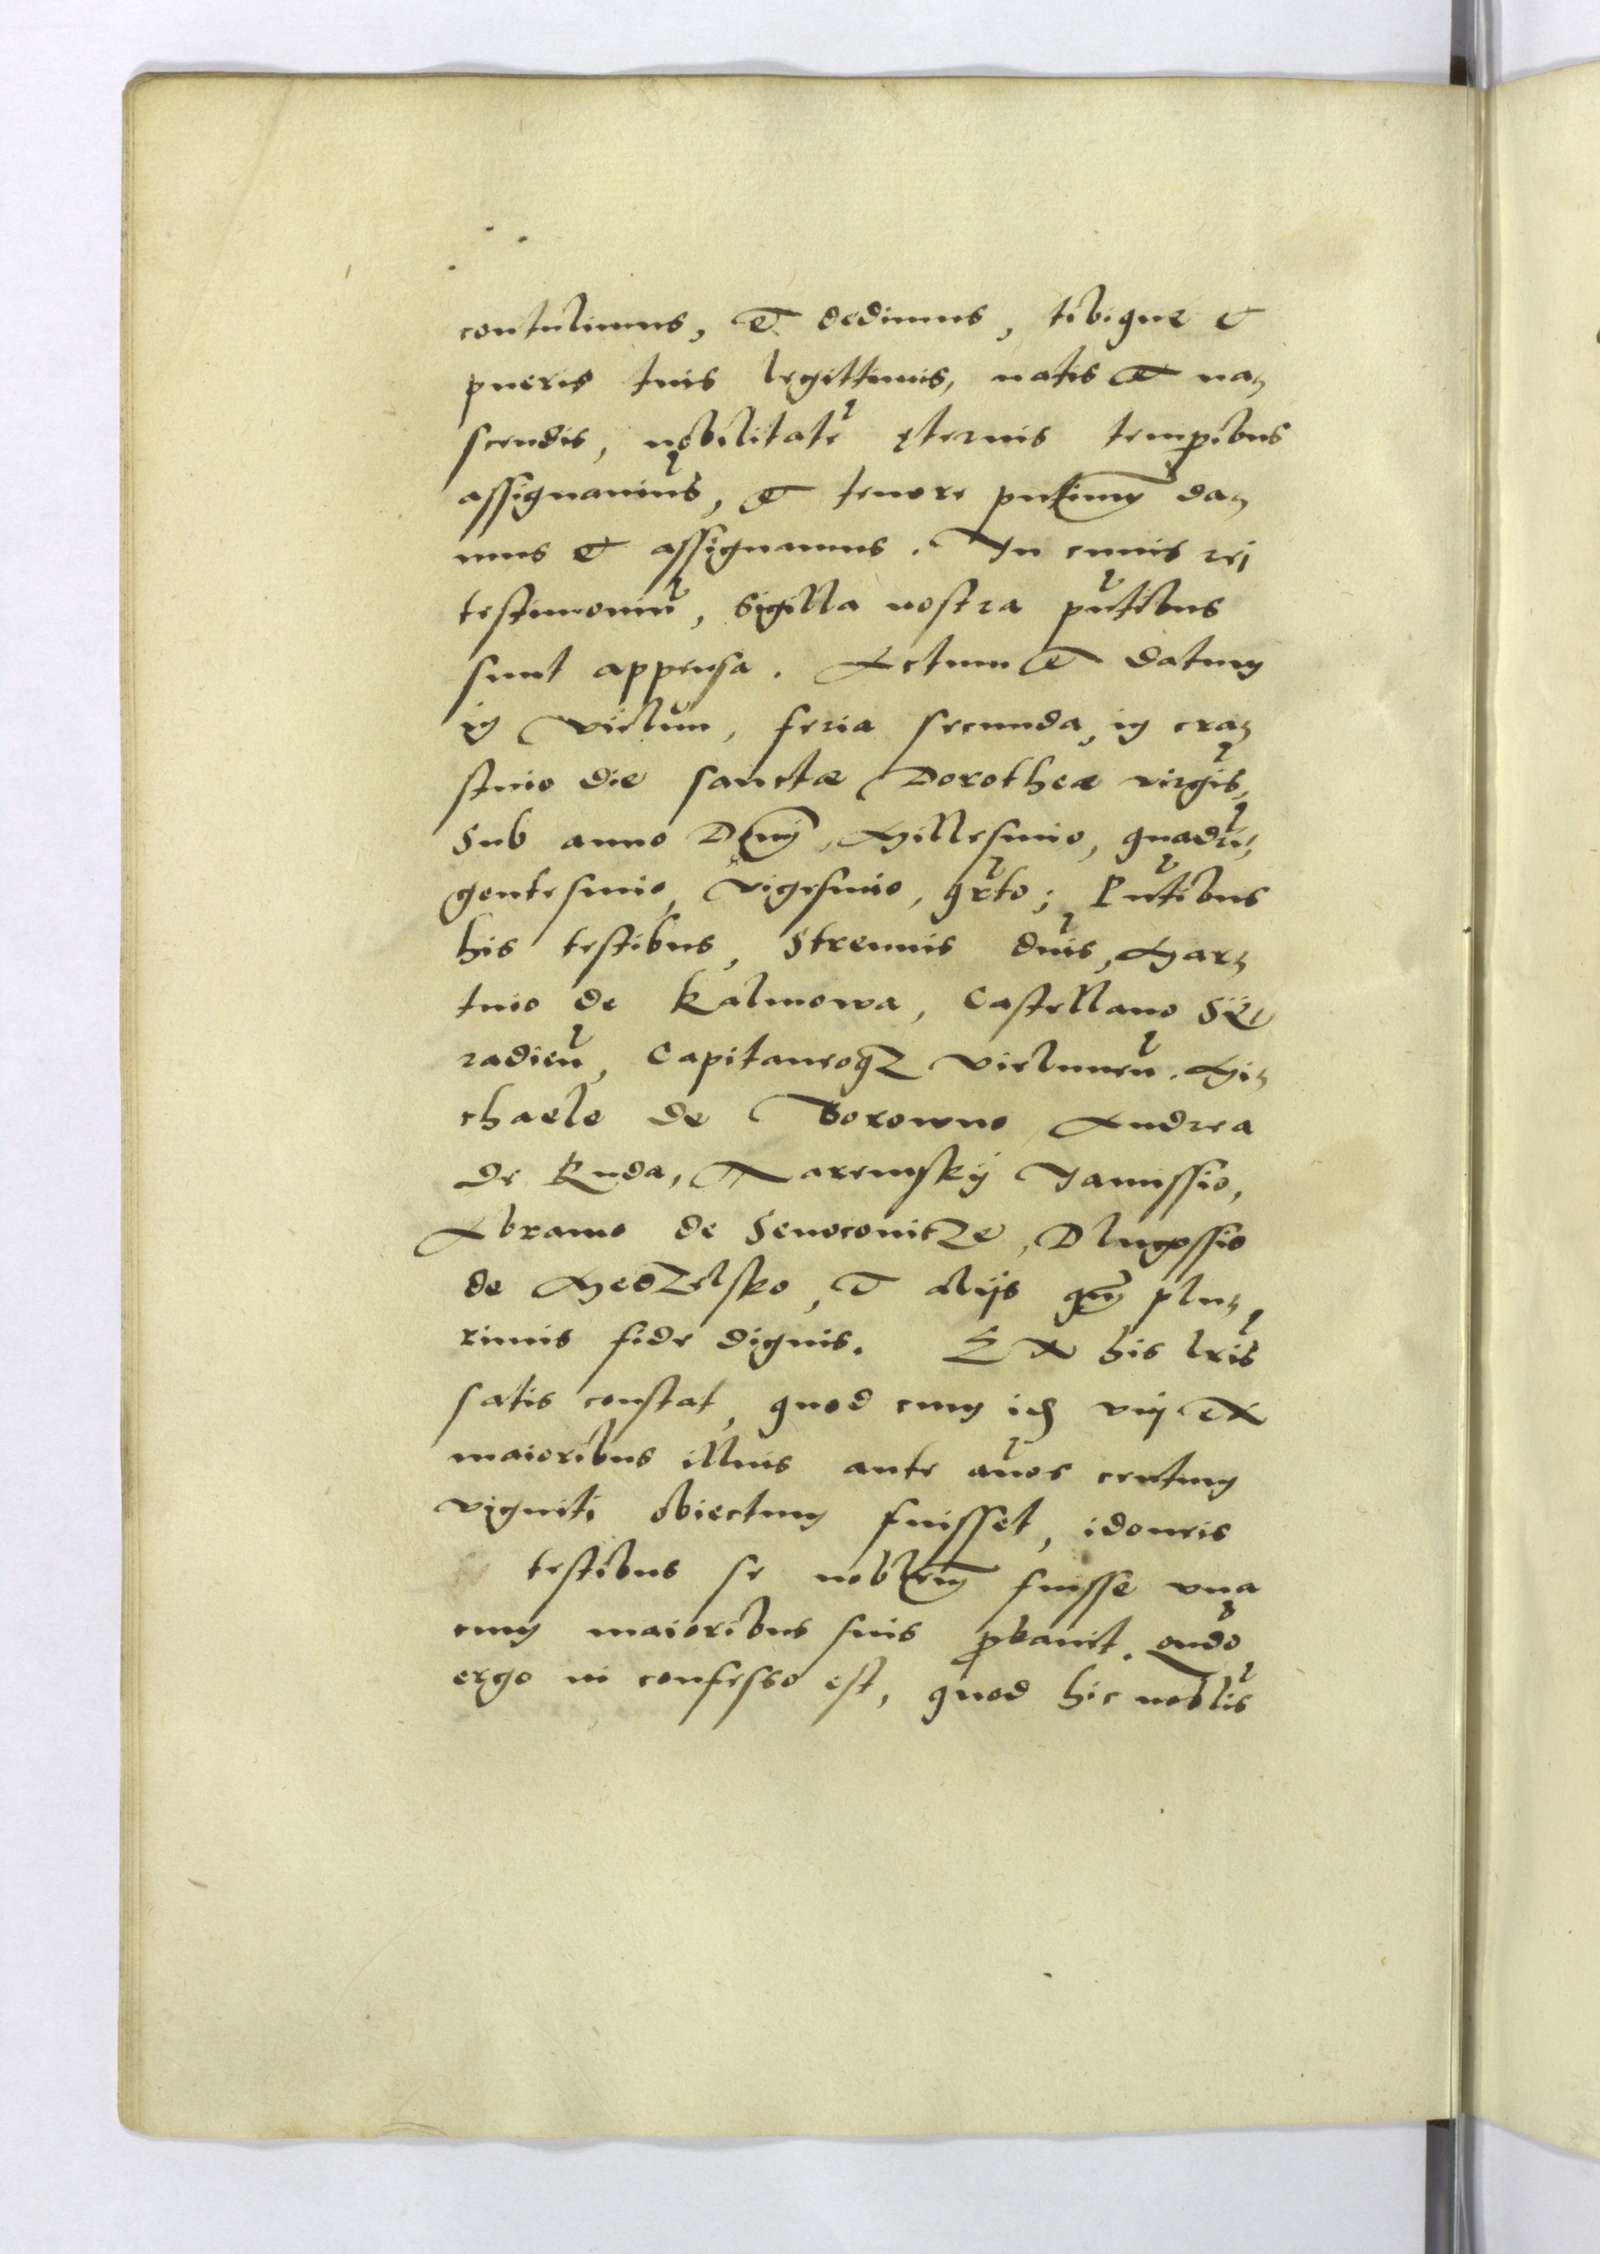 contulimus, et dedimus, tibique et
pueris tuis legittimis, natis et na⸗
scendis, nobilitatē ęternis tempĩbus
assignauim̃s, et tenore pñtium da⸗
mus et assignamus. In cuius rei
testimoniũ, Sigilla nostra pñtibus
sunt appensa. Actum et datum
in Vielun, feria secunda, in cra⸗
stino die sanctæ Dorotheæ virgĩs,
Sub anno Dñj, Millesimo, quadrĩ⸗
gentesimo, Vigesimo, qr̃to; Pñtibus
his testibus, Strenuis dñis, Mar⸗
tino de Kalinowa, Castellano Sÿ⸗
radieñ, Capitaneoq3 Vieluneñ. Mi⸗
chaele de Borowno Andrea
de Ruda, Zaremskÿ Janussio,
Abramo de Senoconitze, Dlugossio
de Medzelsko, et alijs qm̃ plu⸗
rimis fide dignis. Ex his lr̃is
satis constat, quod cum id vni ex
maioribus illius ante ãnos centum
viginti obiectum fuisset, idoneis
testibus se noblem̃ fuisse vna
cum maioribus suis ꝓbauit. Qñdo
ergo in confesso est, quod hic nobĩlis